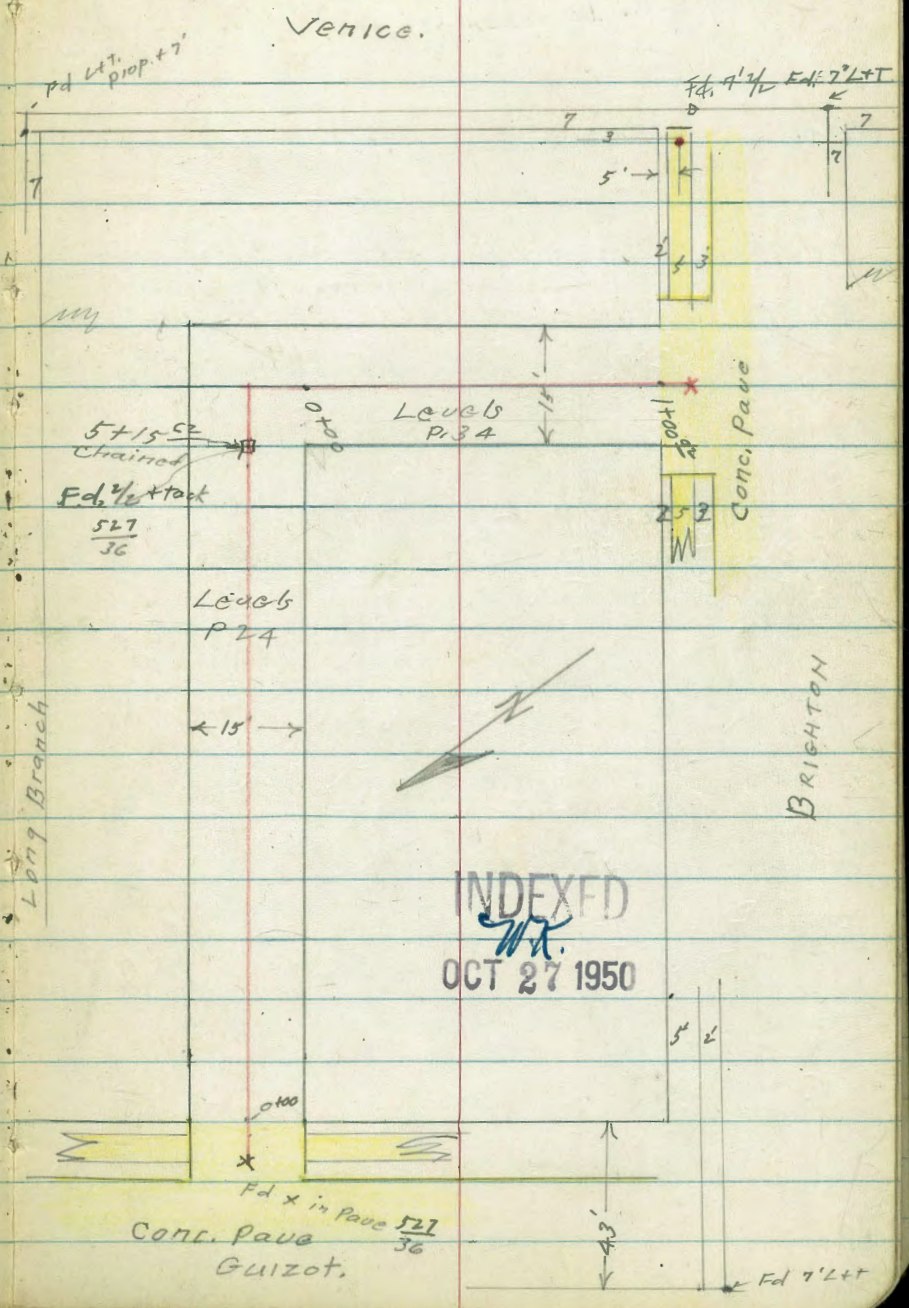 Venice.
Pd L+T.
prop. + 7'
Fd. 7' 1/2
Fd. 7' L+T
7
3
7
7
7
5'
2'
5
3
15'
0+00
Levels
P. 34
Conc. Pave
5+15 62
Chained
Fd. 2/2 + tack
527
36
2 5 3
Levels
P 24
15'
N
Long Branch
BRIGHTON
INDEXED
W.K.
OCT 27 1950
5' 2'
0+00
Fd x in Pave 527
36
43'
Conc. Pave
Guizot.
Fd 7' L+T